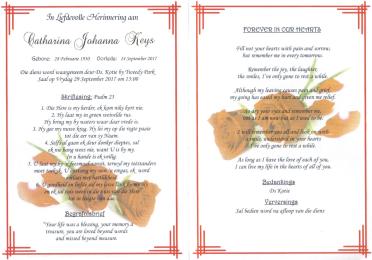 In Liefdevolle Herinnering aan
Catharina Johanna Keys
Gebore: 20 Februarie 1930 Oorlede: 24 September 2017
Die diens word waargeneem deur Ds. Kotie by Tweedy Park
Saal op Vrydag 29 September 2017 om 13:00
Skriflesing: Psalm 23
1. Die Here is my herder, ek kom niks kort nie.
2. Hy laat my in groen weivelde rus.
Hy bring my by waters waar daar vrede is
3. Hy gee my nuwe krag. Hy lei my op die regte paaie
tot die eer van sy Naam
4. Selfs al gaan ek deur donker dieptes, sal
ek nie bang wees nie, want U is by my.
In u hande is ek veilig
Begrafnisbrief
"Your life was a blessing, your memory a
treasure, you are loved beyond words
and missed beyond measure.
FOREVER IN OUR HEARTS
Fill not your hearts with pain and sorrow,
but remember me in every tomorrow.
Remember the joy, the laughter,
the smiles, I've only gone to rest a while.
Although my leaving causes pain and grief,
my going has eased my hurt and given me relief.
I will remember you all and look on with
a smile, understand in your hearts
I've only gone to rest a while.
As long as I have the love of each of you,
I can live my life in the hearts of all of you.
Bedankings
Verversings
Sal bedien word na afloop van die diens